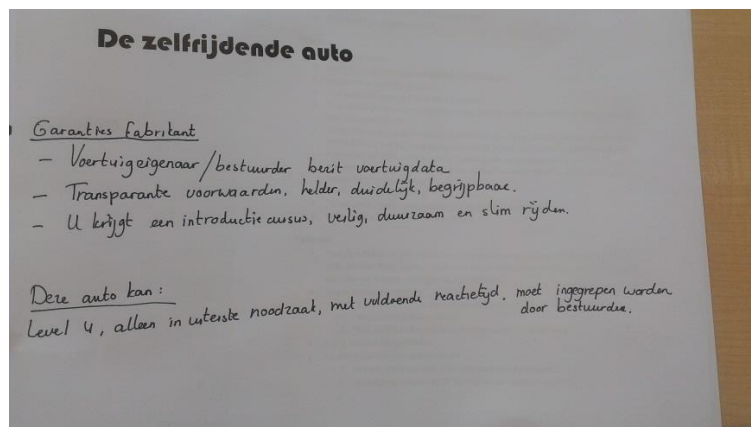 De zelfrijdende auto
Garanties fabrikant
- Voertuigeigenaar/bestuurder bezit voertuigdata
- Transparante voorwaarden, helder, duidelijk, begrijpbaar.
- U krijgt een introductie cursus, veilig, duurzaam en slim rijden.
Deze auto kan:
Level 4, alleen in uiterste noodzaak, met voldoende reactietijd, moet ingegrepen worden
door bestuurder.